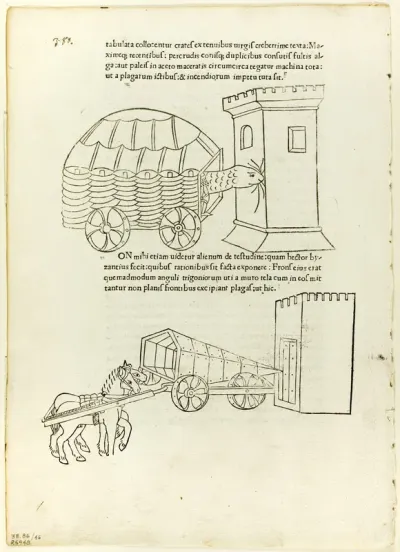 tabulata collocentur crates ex tenuibus uirgis creberrime texta: Ma
xime q; recentibus: percrudis coriisq; duplicibus consutis fultis al
ga: aut paleis in aceto maceratis circumcirca tegatur machina tota:
ut a plagarum ictibus: & incendiorum impetu tuta sit.
ON mihi etiam uidetur alienum de testudine: quam hector by
zantius fecit: quibus rationibus sit facta exponere: Frons eius erat
quemadmodum anguli trigoniorum uti a muro tela cum in eos mit
tantur non planis frontibus excipiant plagas; ut hic.